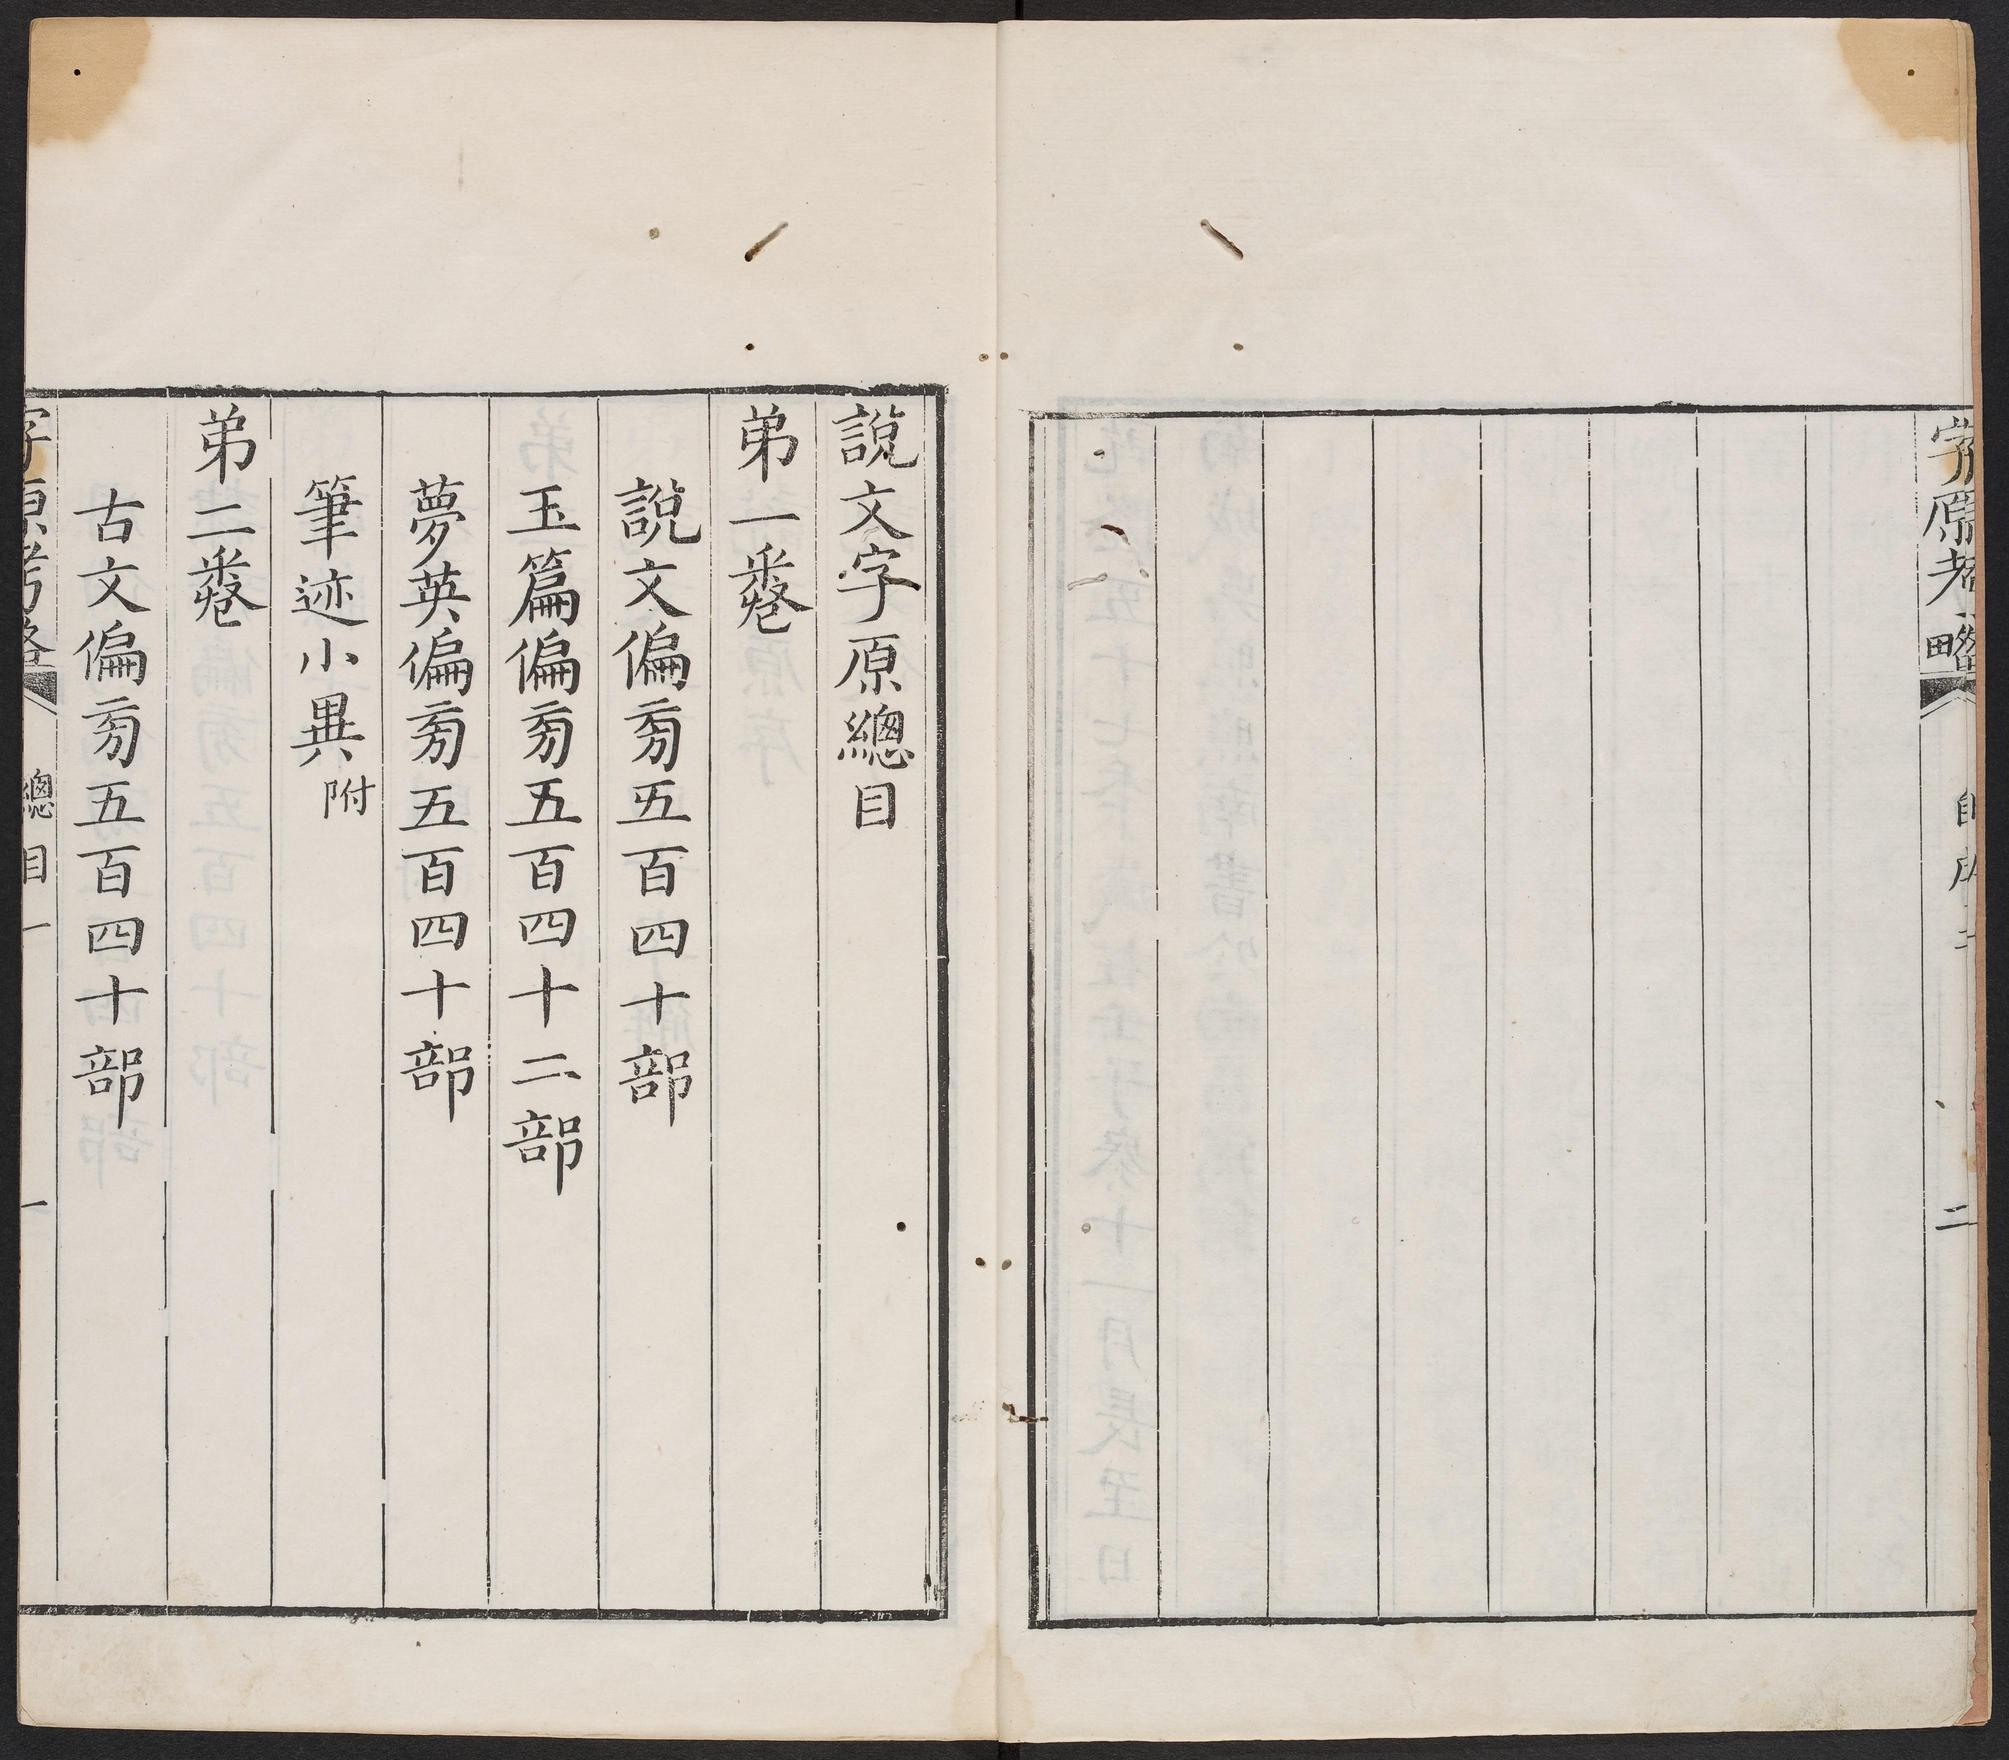 字原考畧
二
說文字原總目
弟一卷
說文偏㫄五百四十部
玉篇偏㫄五百四十二部
夢英偏㫄五百四十部
筆迹小異附
弟二卷
古文偏㫄五百四十部
字原考畧 總目一 一